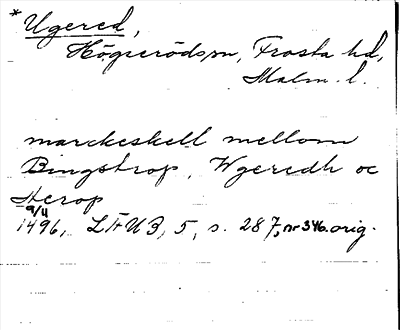 * Ugered,
Högseröds sn, Frosta hd,
Malm. l.
marckeskell mellom
Bingstrop, Wgeredh oc
Herop
9/11
1496, LÄUB, 5, s. 287, nr 346. orig.